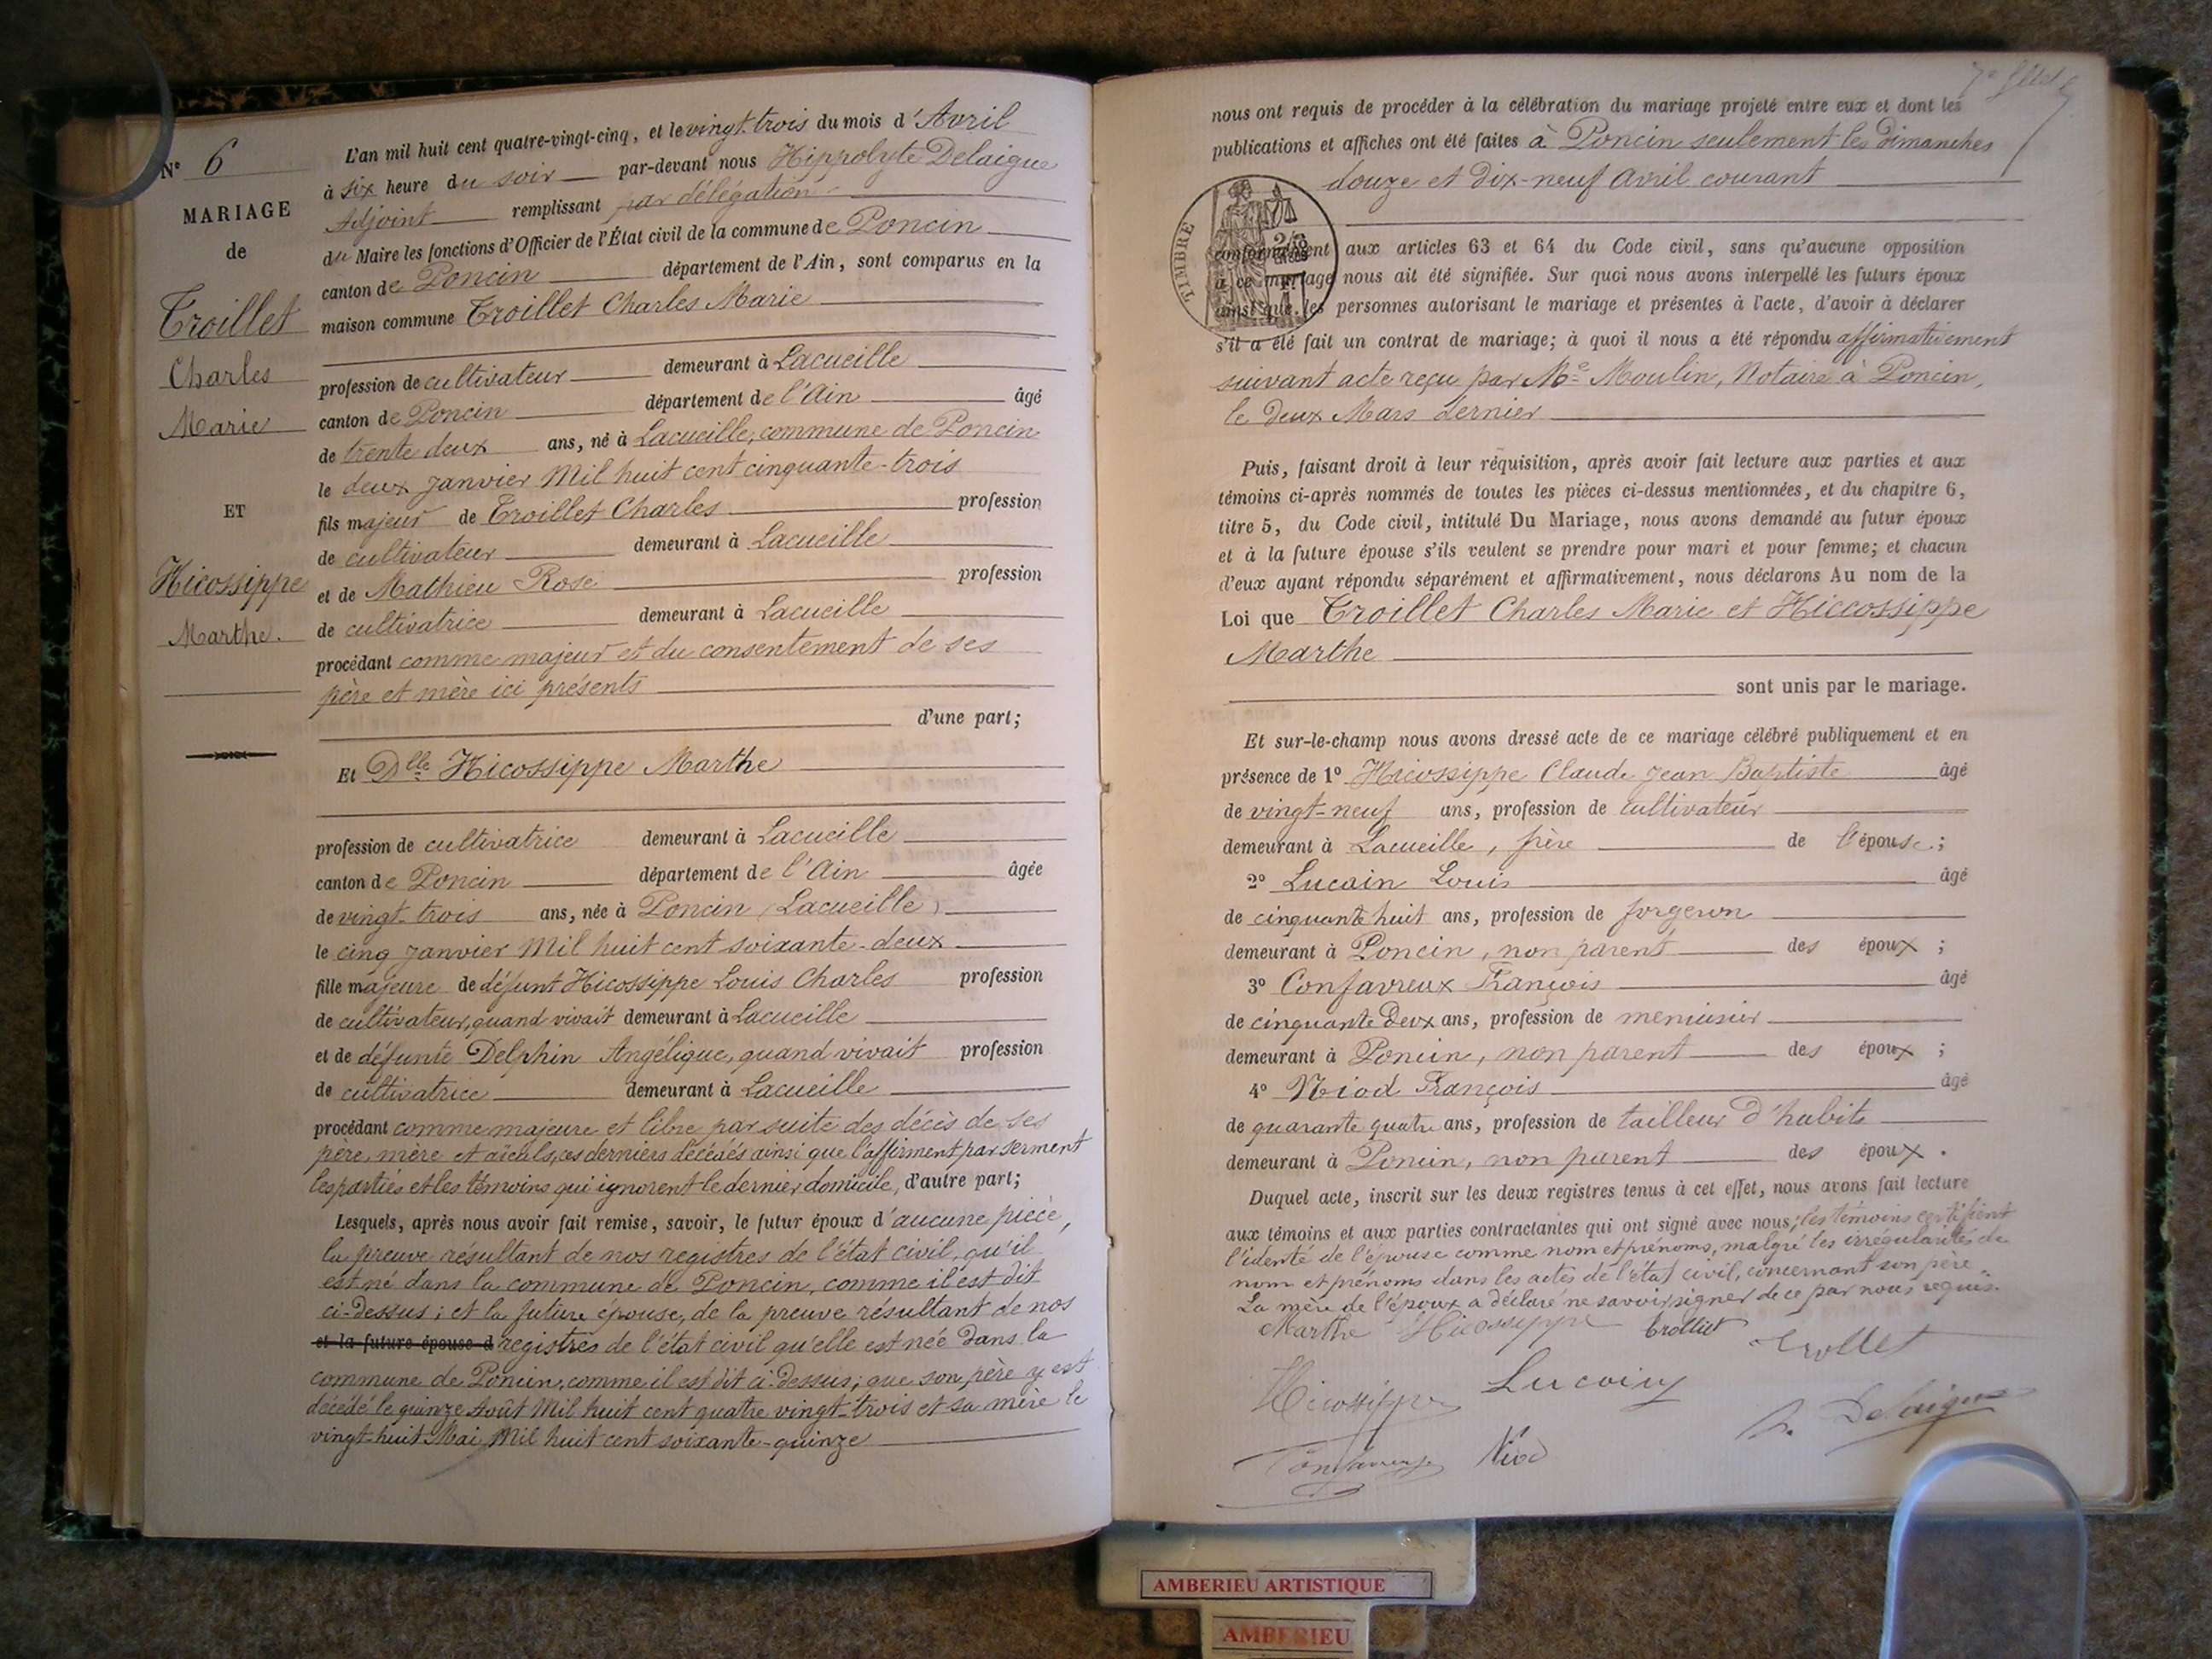 N° 6
MARIAGE
de
Troillet
Charles
Marie
ET
Hicossippe
Marthe.
L'an mil huit cent quatre-vingt-cinq, et le vingt-trois du mois d'Avril
à six heure du soir par-devant nous Hippolyte Delaigue
Adjoint remplissant par délégation
du Maire les fonctions d'Officier de l'État civil de la commune de Poncin
canton de Poncin département de l'Ain, sont comparus en la
maison commune Troillet Charles Marie
profession de cultivateur demeurant à Lacueille
canton de Poncin département de l'Ain âgé
de trente deux ans, né à Lacueille, commune de Poncin
le deux Janvier Mil huit cent cinquante-trois
fils majeur de Troillet Charles profession
de cultivateur demeurant à Lacueille
et de Mathieu Rose profession
de cultivatrice demeurant à Lacueille
procédant comme majeur et du consentement de ses
père et mère ici présents
d'une part;
Et Dlle Hicossippe Marthe
profession de cultivatrice demeurant à Lacueille
canton de Poncin département de l'Ain âgée
de vingt-trois ans, née à Poncin (Lacueille)
le cinq Janvier Mil huit cent soixante-deux
fille majeure de défunt Hicossippe Louis Charles profession
de cultivateur, quand vivait demeurant à Lacueille
et de défunte Delphin Angélique, quand vivait profession
de cultivatrice demeurant à Lacueille
procédant comme majeure et libre par suite des décès de ses
père, mère et aïeuls, ces derniers décédés ainsi que l'affirment par serment
les parties et les témoins qui ignorent le dernier domicile, d'autre part;
Lesquels, après nous avoir fait remise, savoir, le futur époux d'aucune pièce,
la preuve résultant de nos registres de l'état civil, qu'il
est né dans la commune de Poncin, comme il est dit
ci-dessus; et la future épouse, de la preuve résultant de nos
et la future épouse d registres de l'état civil qu'elle est née dans la
commune de Poncin, comme il est dit ci-dessus; que son père y est
décédé le quinze Août Mil huit cent quatre vingt-trois et sa mère le
vingt-huit Mai Mil huit cent soixante-quinze
nous ont requis de procéder à la célébration du mariage projeté entre eux et dont les
publications et affiches ont été faites à Poncin seulement les dimanches
douze et dix-neuf Avril courant
TIMBRE
conformément aux articles 63 et 64 du Code civil, sans qu'aucune opposition
à ce mariage nous ait été signifiée. Sur quoi nous avons interpellé les futurs époux
ainsi que les personnes autorisant le mariage et présentes à l'acte, d'avoir à déclarer
s'il a été fait un contrat de mariage; à quoi il nous a été répondu affirmativement
suivant acte reçu par Me Moulin, Notaire à Poncin,
le deux Mars dernier
Puis, faisant droit à leur réquisition, après avoir fait lecture aux parties et aux
témoins ci-après nommés de toutes les pièces ci-dessus mentionnées, et du chapitre 6,
titre 5, du Code civil, intitulé Du Mariage, nous avons demandé au futur époux
et à la future épouse s'ils veulent se prendre pour mari et pour femme; et chacun
d'eux ayant répondu séparément et affirmativement, nous déclarons Au nom de la
Loi que Troillet Charles Marie et Hiccossippe
Marthe
sont unis par le mariage.
Et sur-le-champ nous avons dressé acte de ce mariage célébré publiquement et en
présence de 1° Hicossippe Claude Jean Baptiste âgé
de vingt-neuf ans, profession de cultivateur
demeurant à Lacueille, frère de l'épouse;
2° Lucain Louis âgé
de cinquante huit ans, profession de forgeron
demeurant à Poncin, non parent des époux;
3° Confavreux François âgé
de cinquante Deux ans, profession de menuisier
demeurant à Poncin, non parent des époux;
4° Niod François âgé
de quarante quatre ans, profession de tailleur d'habits
demeurant à Poncin, non parent des époux.
Duquel acte, inscrit sur les deux registres tenus à cet effet, nous avons fait lecture
aux témoins et aux parties contractantes qui ont signé avec nous; les témoins certifient
l'identé de l'épouse comme nom et prénoms, malgré les irrégularités de
nom et prénoms dans les actes de l'état civil, concernant son père.
La mère de l'époux a déclaré ne savoir signer de ce par nous requis.
Marthe Hicossippe Trolliet Trollet
Hicossippe Lucain
Confavreux Niod h. Delaigue
AMBERIEU ARTISTIQUE
AMBERIEU